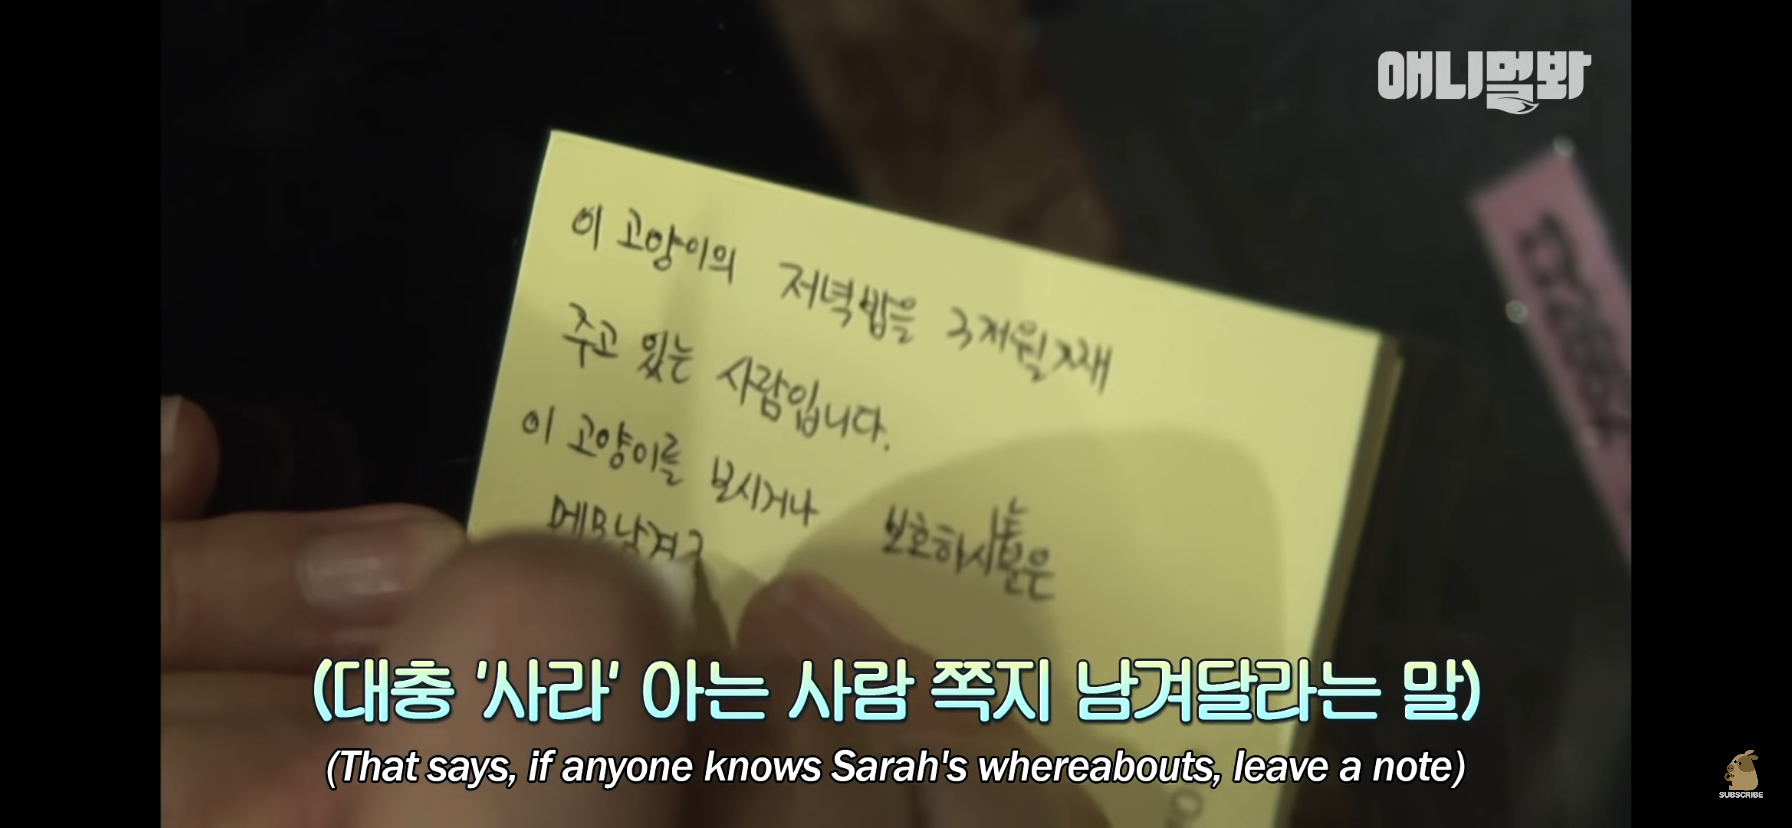 애니멀봐
이 고양이의 저녁밥을 3개월째
주고 있는 사람입니다.
이 고양이를 보시거나 보호하시는 분은
메모 남겨
(대충 '사라' 아는 사람 쪽지 남겨달라는 말)
(That says, if anyone knows Sarah's whereabouts, leave a note)
SUBSCRIBE